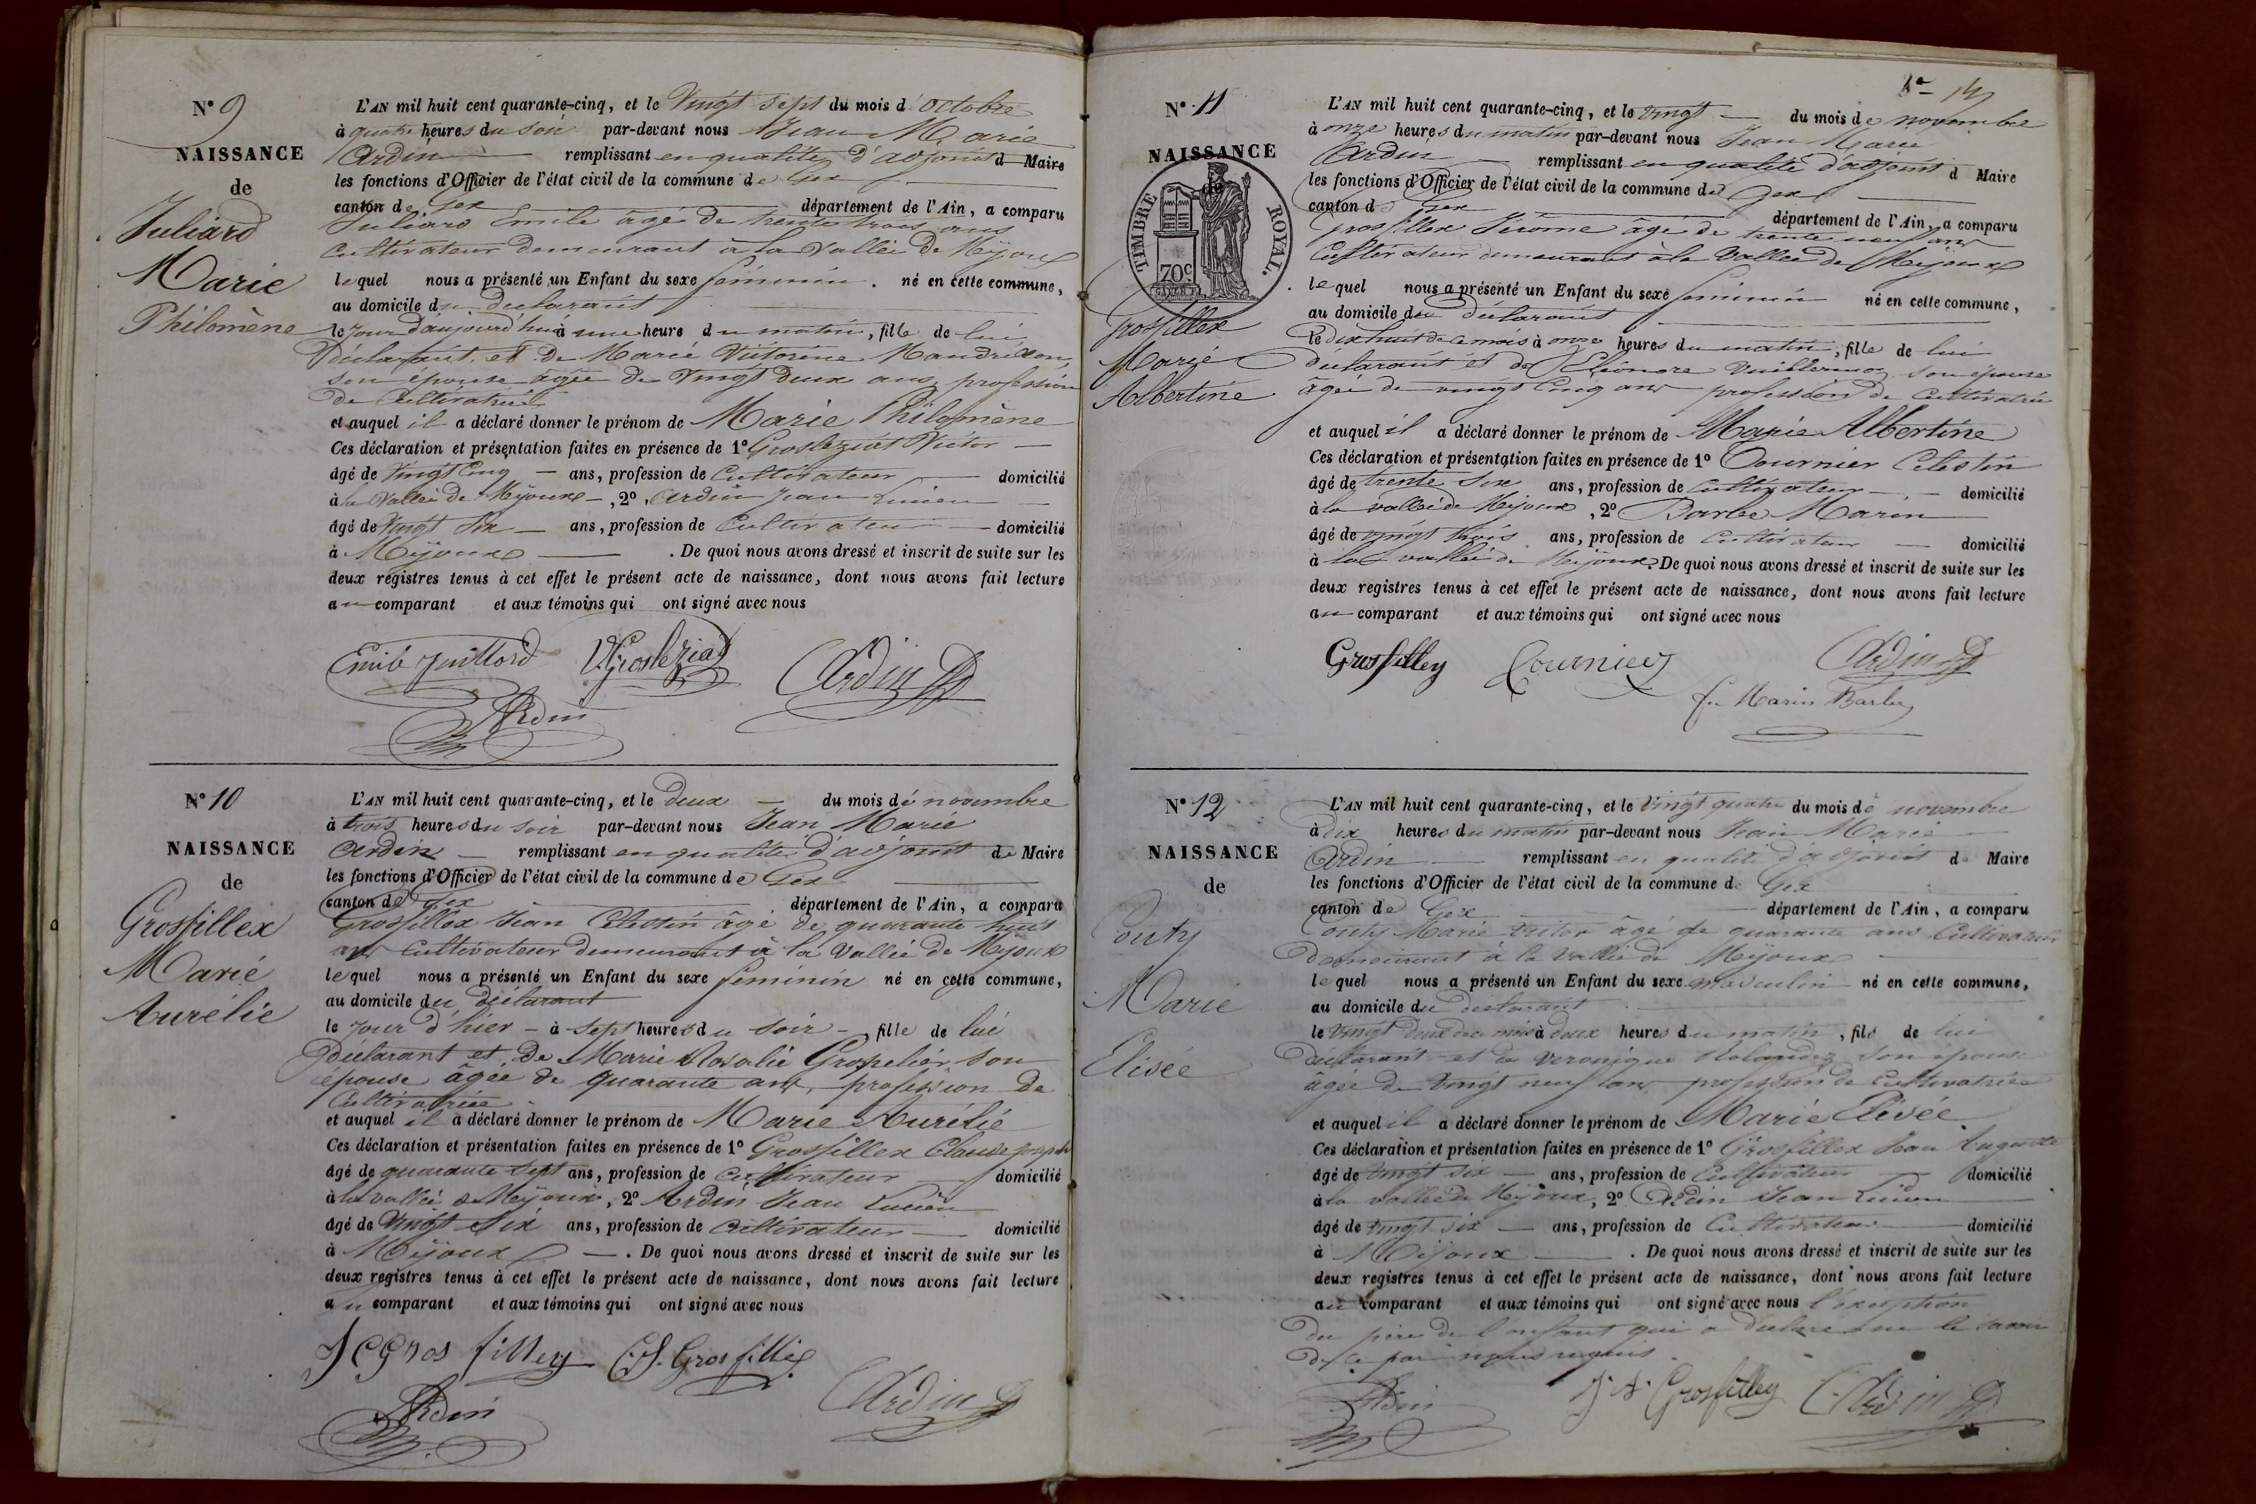 N° 9
NAISSANCE
de
Juliard
Marie
Philomène
L'AN mil huit cent quarante-cinq, et le Vingt sept du mois d'octobre
à quatre heures du soir par-devant nous Jean Marie
Ardin remplissant en qualité d'adjoint d Maire
les fonctions d'Officier de l'état civil de la commune de Gex
canton de Gex département de l'Ain, a comparu
Juliard Emile âgé de trente trois ans
Cultivateur demeurant à la Vallée de Mijoux
lequel nous a présenté un Enfant du sexe féminin. né en cette commune,
au domicile du déclarant
le jour d'aujourd'hui à une heure du matin, fille de lui
déclarant et de Marie Victorine Mandrillon,
son épouse âgée de Vingt deux ans, profession
de Cultivatrice
et auquel il a déclaré donner le prénom de Marie Philomène
Ces déclaration et présentation faites en présence de 1° Grosleziat Victor
âgé de Vingt Cinq ans, profession de Cultivateur domicilié
à la Vallée de Mijoux, 2° Ardin Jean Lucien
âgé de Vingt Six ans, profession de Cultivateur domicilié
à Mijoux. De quoi nous avons dressé et inscrit de suite sur les
deux registres tenus à cet effet le présent acte de naissance, dont nous avons fait lecture
au comparant et aux témoins qui ont signé avec nous
Emile Juillard V. Grosleziat Ardin
Ardin
N° 10
NAISSANCE
de
Grosfillex
Marie
Aurélie
L'AN mil huit cent quarante-cinq, et le deux du mois de novembre
à trois heures du soir par-devant nous Jean Marie
Ardin remplissant en qualité d'adjoint de Maire
les fonctions d'Officier de l'état civil de la commune de Gex
canton de Gex département de l'Ain, a comparu
Grosfillex Jean Célestin âgé de quarante huit
ans Cultivateur demeurant à la Vallée de Mijoux
lequel nous a présenté un Enfant du sexe féminin né en cette commune,
au domicile du déclarant
le jour d'hier à sept heures du soir, fille de lui
déclarant et de Marie Rosalie Grospelier son
épouse âgée de quarante ans, profession de
Cultivatrice
et auquel il a déclaré donner le prénom de Marie Aurélie
Ces déclaration et présentation faites en présence de 1° Grosfillex Claude Joseph
âgé de quarante sept ans, profession de cultivateur domicilié
à la vallée de Mijoux, 2° Ardin Jean Lucien
âgé de Vingt Six ans, profession de Cultivateur domicilié
à Mijoux. De quoi nous avons dressé et inscrit de suite sur les
deux registres tenus à cet effet le présent acte de naissance, dont nous avons fait lecture
au comparant et aux témoins qui ont signé avec nous
J C Gros filley C. J. Gros fillex
Ardin Ardin
14
N° 11
NAISSANCE
de
TIMBRE ROYAL.
70c
Grosfillex
Marie
Albertine
L'AN mil huit cent quarante-cinq, et le vingt du mois de novembre
à onze heures du matin par-devant nous Jean Marie
Ardin remplissant en qualité d'adjoint d Maire
les fonctions d'Officier de l'état civil de la commune de Gex
canton d Gex département de l'Ain, a comparu
Grosfillex Jérome âgé de trente neuf ans
Cultivateur demeurant à la Vallée de Mijoux
lequel nous a présenté un Enfant du sexe féminin né en cette commune,
au domicile du déclarant
le dix huit de ce mois à onze heures du matin, fille de lui
déclarant et de Eléonore Vuillermoz son épouse
âgée de vingt Cinq ans profession de Cultivatrice
et auquel il a déclaré donner le prénom de Marie Albertine
Ces déclaration et présentation faites en présence de 1° Tournier Celestin
âgé de trente Six ans, profession de cultivateur domicilié
à la vallée de Mijoux, 2° Barbe Marin
âgé de vingt trois ans, profession de cultivateur domicilié
à la vallée de Mijoux. De quoi nous avons dressé et inscrit de suite sur les
deux registres tenus à cet effet le présent acte de naissance, dont nous avons fait lecture
au comparant et aux témoins qui ont signé avec nous
Grosfilley Tournier Ardin
Marin Barbe
N° 12
NAISSANCE
de
Couty
Marie
Elisée
L'AN mil huit cent quarante-cinq, et le Vingt quatre du mois de novembre
à dix heures du matin par-devant nous Jean Marie
Ardin remplissant en qualité d'adjoint de Maire
les fonctions d'Officier de l'état civil de la commune de Gex
canton de Gex département de l'Ain, a comparu
Couty Marie Victor âgé de quarante ans Cultivateur
demeurant à la Vallée de Mijoux
lequel nous a présenté un Enfant du sexe masculin né en cette commune,
au domicile du déclarant
le Vingt deux de ce mois à deux heures du matin, fils de lui
déclarant et de Veronique Rolandez son épouse
âgée de Vingt neuf ans profession de Cultivatrice
et auquel il a déclaré donner le prénom de Marie Elisée
Ces déclaration et présentation faites en présence de 1° Grosfillex Jean Auguste
âgé de Vingt Six ans, profession de Cultivateur domicilié
à la vallée de Mijoux, 2° Ardin Jean Lucien
âgé de Vingt six ans, profession de Cultivateur domicilié
à Mijoux. De quoi nous avons dressé et inscrit de suite sur les
deux registres tenus à cet effet le présent acte de naissance, dont nous avons fait lecture
au comparant et aux témoins qui ont signé avec nous l'exception
du père de l'enfant qui a déclaré ne le savoir
de ce par nous requis.
Ardin J. A. Grosfilley Ardin